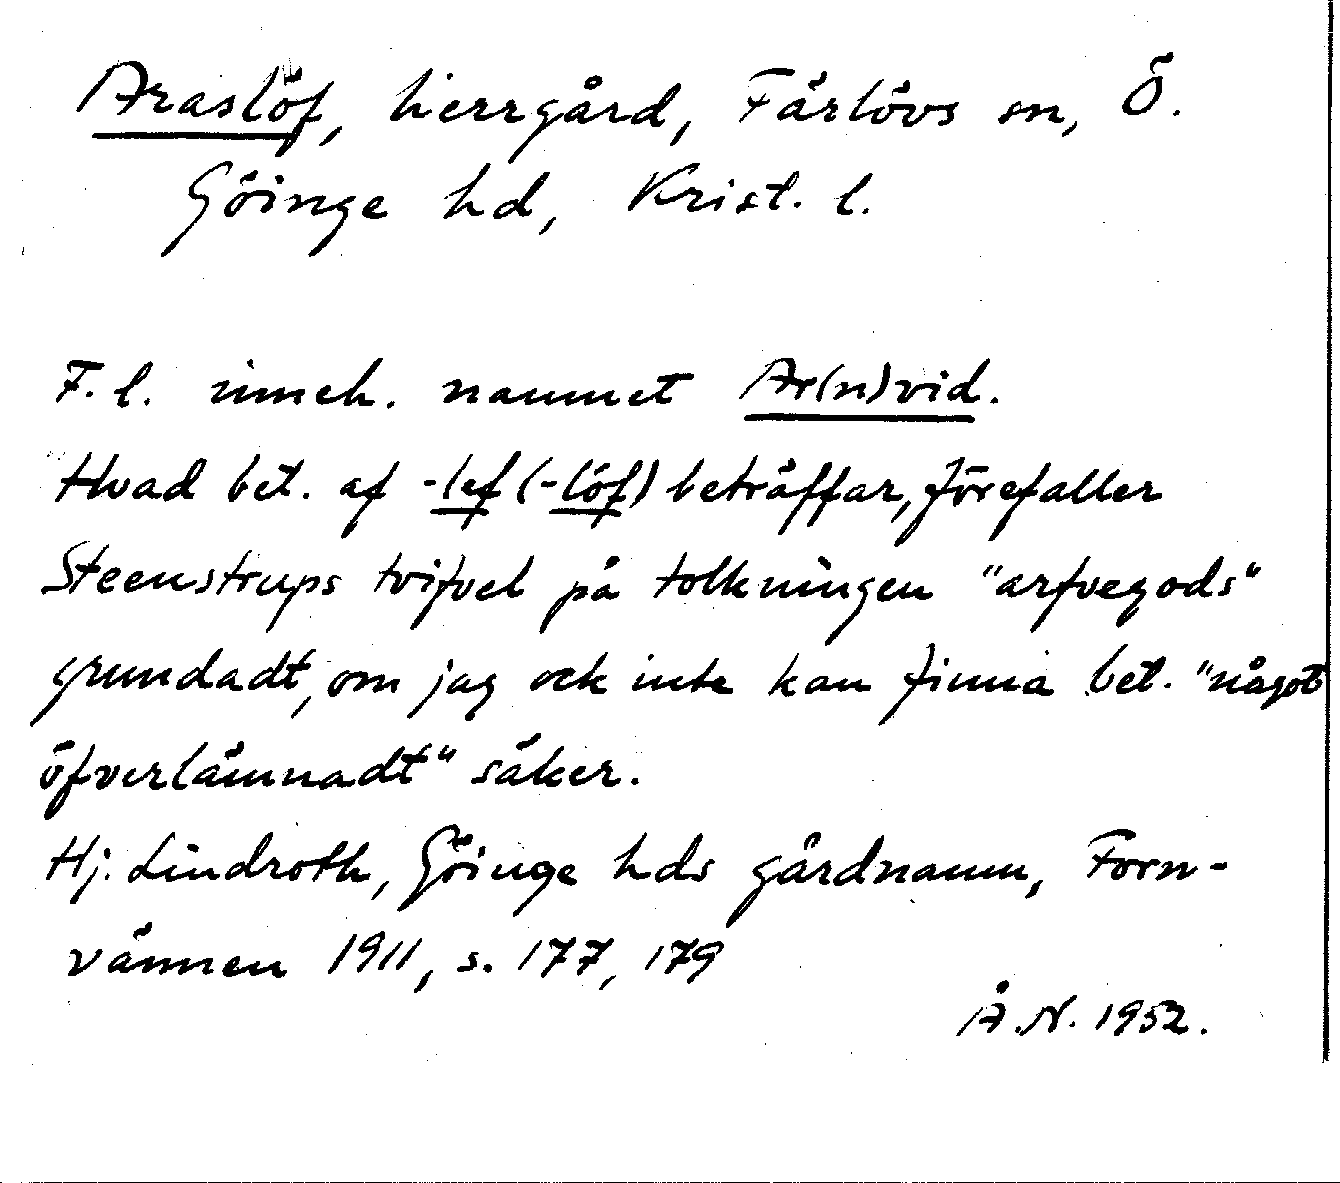 Araslöf, herrgård, Färlövs sn, Ö.
Göinge hd, Krist. l.
F. l. inneh. namnet Ar(n)vid.
Hvad bet. af -lef (-löf) beträffar, förefaller
Steenstrups tvifvel på tolkningen "arfvegods"
grundadt, om jag ock inte kan finna bet. "något
öfverlämnadt" säker.
Hj. Lindroth, Göinge hds gårdnamn, Forn-
vännen 1911, s. 177, 179
Å.N. 1952.